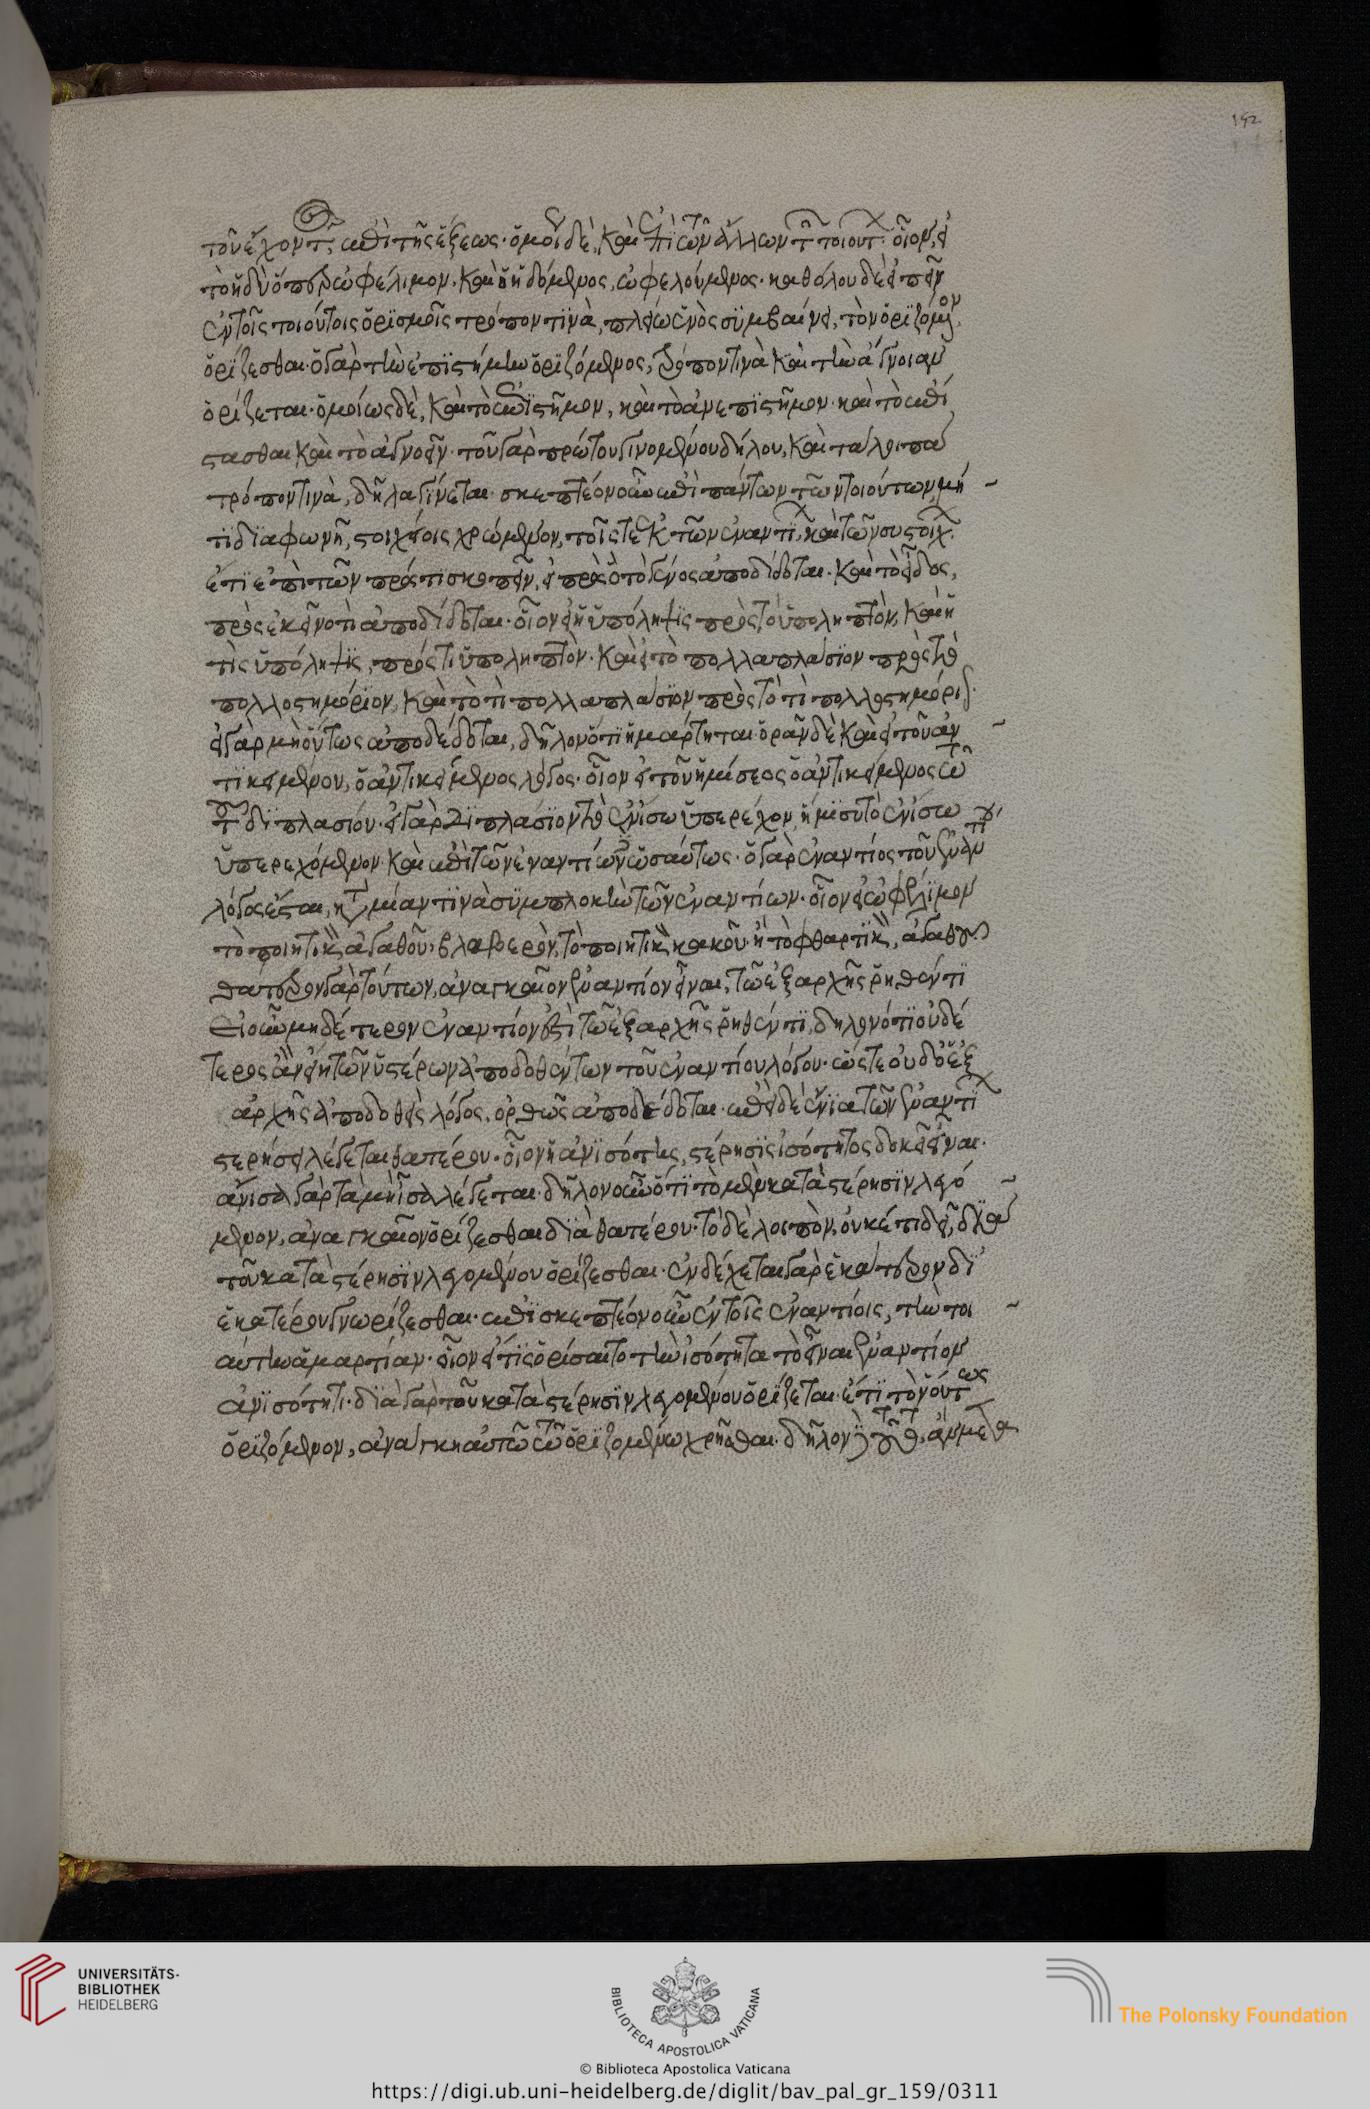 τοῦ ἔχοντος, ἐπὶ τῆς ἕξεως· ὁμοίως δὲ, καὶ ἐπὶ τῶν ἄλλων τῶν τοιούτων· οἷον, εἰ
τὸ ἡδὺ ὅπερ ὠφέλιμον, καὶ ὁ ἡδόμενος, ὠφελούμενος· καθόλου δὲ εἰπεῖν
ἐν τοῖς τοιούτοις ὁρϊσμοῖς τρόπον τϊνὰ, πλείω ἑνὸς συμβαίνει, τὸν ὁρϊζόμενον,
ὁρίζεσθαι· ὁ γὰρ τὴν ἐπϊστήμην ὁρϊζόμενος, τρόπον τινὰ καὶ τὴν ἄγνοιαν
ὁρίζεται· ὁμοίως δὲ, καὶ τὸ ἐπϊστῆμον, καὶ τὸ ἀνεπϊστῆμον· καὶ τὸ ἐπί
στασθαι καὶ τὸ ἀγνοεῖν· τοῦ γὰρ πρώτου γινομένου δήλου, καὶ τὰ λοιπὰ
τρόπον τινὰ, δῆλα γίνεται· σκεπτέον οὖν ἐπὶ πάντων τῶν τοιούτων, μή
τϊ δϊαφωνῆ, στοιχείοις χρώμενον, τοῖς τε ἐκ τῶν ἐναντίων, καὶ τῶν συστοίχων·
ἔτι ἐπὶ τῶν πρός τι σκοπεῖν, εἰ πρὸς ὃ τὸ γένος ἀποδίδοται· καὶ τὸ εἶδος,
πρὸς ἐκεῖνο τὶ ἀποδίδοται· οἷον εἰ ἡ ὑπόληψϊς πρὸς τὸ ὑποληπτὸν, καὶ ἡ
τὶς ὑπόληψϊς, πρός τι ὑποληπτὸν· καὶ εἰ τὸ πολλαπλάσϊον πρὸς τὸ
πολλοστημόρϊον, καὶ τὸ τὶ πολλαπλάσϊον πρὸς τὸ τὶ πολλοστημόριον·
εἰ γὰρ μὴ οὕτως ἀποδέδοται, δῆλον ὅτϊ ἡμάρτηται· ὁρᾶν δὲ καὶ εἰ τοῦ ἀν
τϊκειμένου, ὁ ἀντικείμενος λόγος· οἷον εἰ τοῦ ἡμίσεος ὁ ἀντικείμενος τῶ
τοῦ δϊπλασίου· εἰ γὰρ δϊπλάσϊον τὸ ἐν ἴσω ὑπερέχον, ἥμισυ τὸ ἐν ἴσω
ὑπερεχόμενον· καὶ ἐπὶ τῶν ἐναντίων ὡσαύτως· ὁ γὰρ ἐναντίος τοῦ ἐναντίου
λόγος ἔσται, κατὰ μίαν τϊνὰ συμπλοκὴν τῶν ἐναντίων· οἷον εἰ ὠφέλϊμον
τὸ ποιητικὸν ἀγαθοῦ· βλαβερὸν, τὸ ποιητικὸν κακοῦ· ἢ τὸ φθαρτϊκὸν, ἀγαθοῦ·
θάτερον γὰρ τούτων, ἀναγκαῖον ἐναντίον εἶναι, τῶ ἐξαρχῆς ῥηθέντϊ
εἰ οὖν μηδέτερον ἐναντίον ἐστὶ τῶ ἐξαρχῆς ῥηθέντϊ, δῆλον ὅτϊ οὐδέ
τερος ἂν εἴη τῶν ὑστέρων ἀποδοθέντων τοῦ ἐναντίου λόγος· ὥστε οὐδ' ὁ ἐξ
ἀρχῆς ἀποδοθεὶς λόγος, ὀρθῶς ἀποδέδοται· ἐπεὶ δὲ ἔνϊα τῶν ἐναντίων
στερήσει λέγεται θατέρου· οἷον ἡ ἀνϊσότης, στέρησϊς ἰσότητος δοκεῖ εἶναι·
ἄνισα γὰρ τὰ μὴ ἴσα λέγεται· δῆλον οὖν ὅτϊ τὸ μὲν κατὰ στέρησϊν λεγό
μενον, ἀναγκαῖον ὁρίζεσθαι δϊὰ θατέρου· τὸ δὲ λοιπὸν, οὐκέτι δεῖ, δϊὰ
τοῦ κατὰ στέρησϊν λεγομένου ὁρίζεσθαι· ἐνδέχεται γὰρ ἑκάτερον δϊ'
ἑκατέρου γνωρίζεσθαι· ἐπϊσκεπτέον οὖν ἐν τοῖς ἐναντίοις, τὴν τοι
αύτην ἁμαρτίαν· οἷον εἴ τϊς ὁρίσαιτο τὴν ἰσότητα τὸ εἶναι ἐναντίον
ἀνϊσότητι· δϊὰ γὰρ τοῦ κατὰ στέρησϊν λεγομένου ὁρίζεται· ἔτϊ τὸν οὕτως
ὁρϊζόμενον, ἀνάγκη αὐτῶ τῶ ὁρϊζομένω χρῆσθαι· δῆλον
192
UNIVERSITÄTS-
BIBLIOTHEK
HEIDELBERG
BIBLIOTECA APOSTOLICA VATICANA
The Polonsky Foundation
© Biblioteca Apostolica Vaticana
https://digi.ub.uni-heidelberg.de/diglit/bav_pal_gr_159/0311